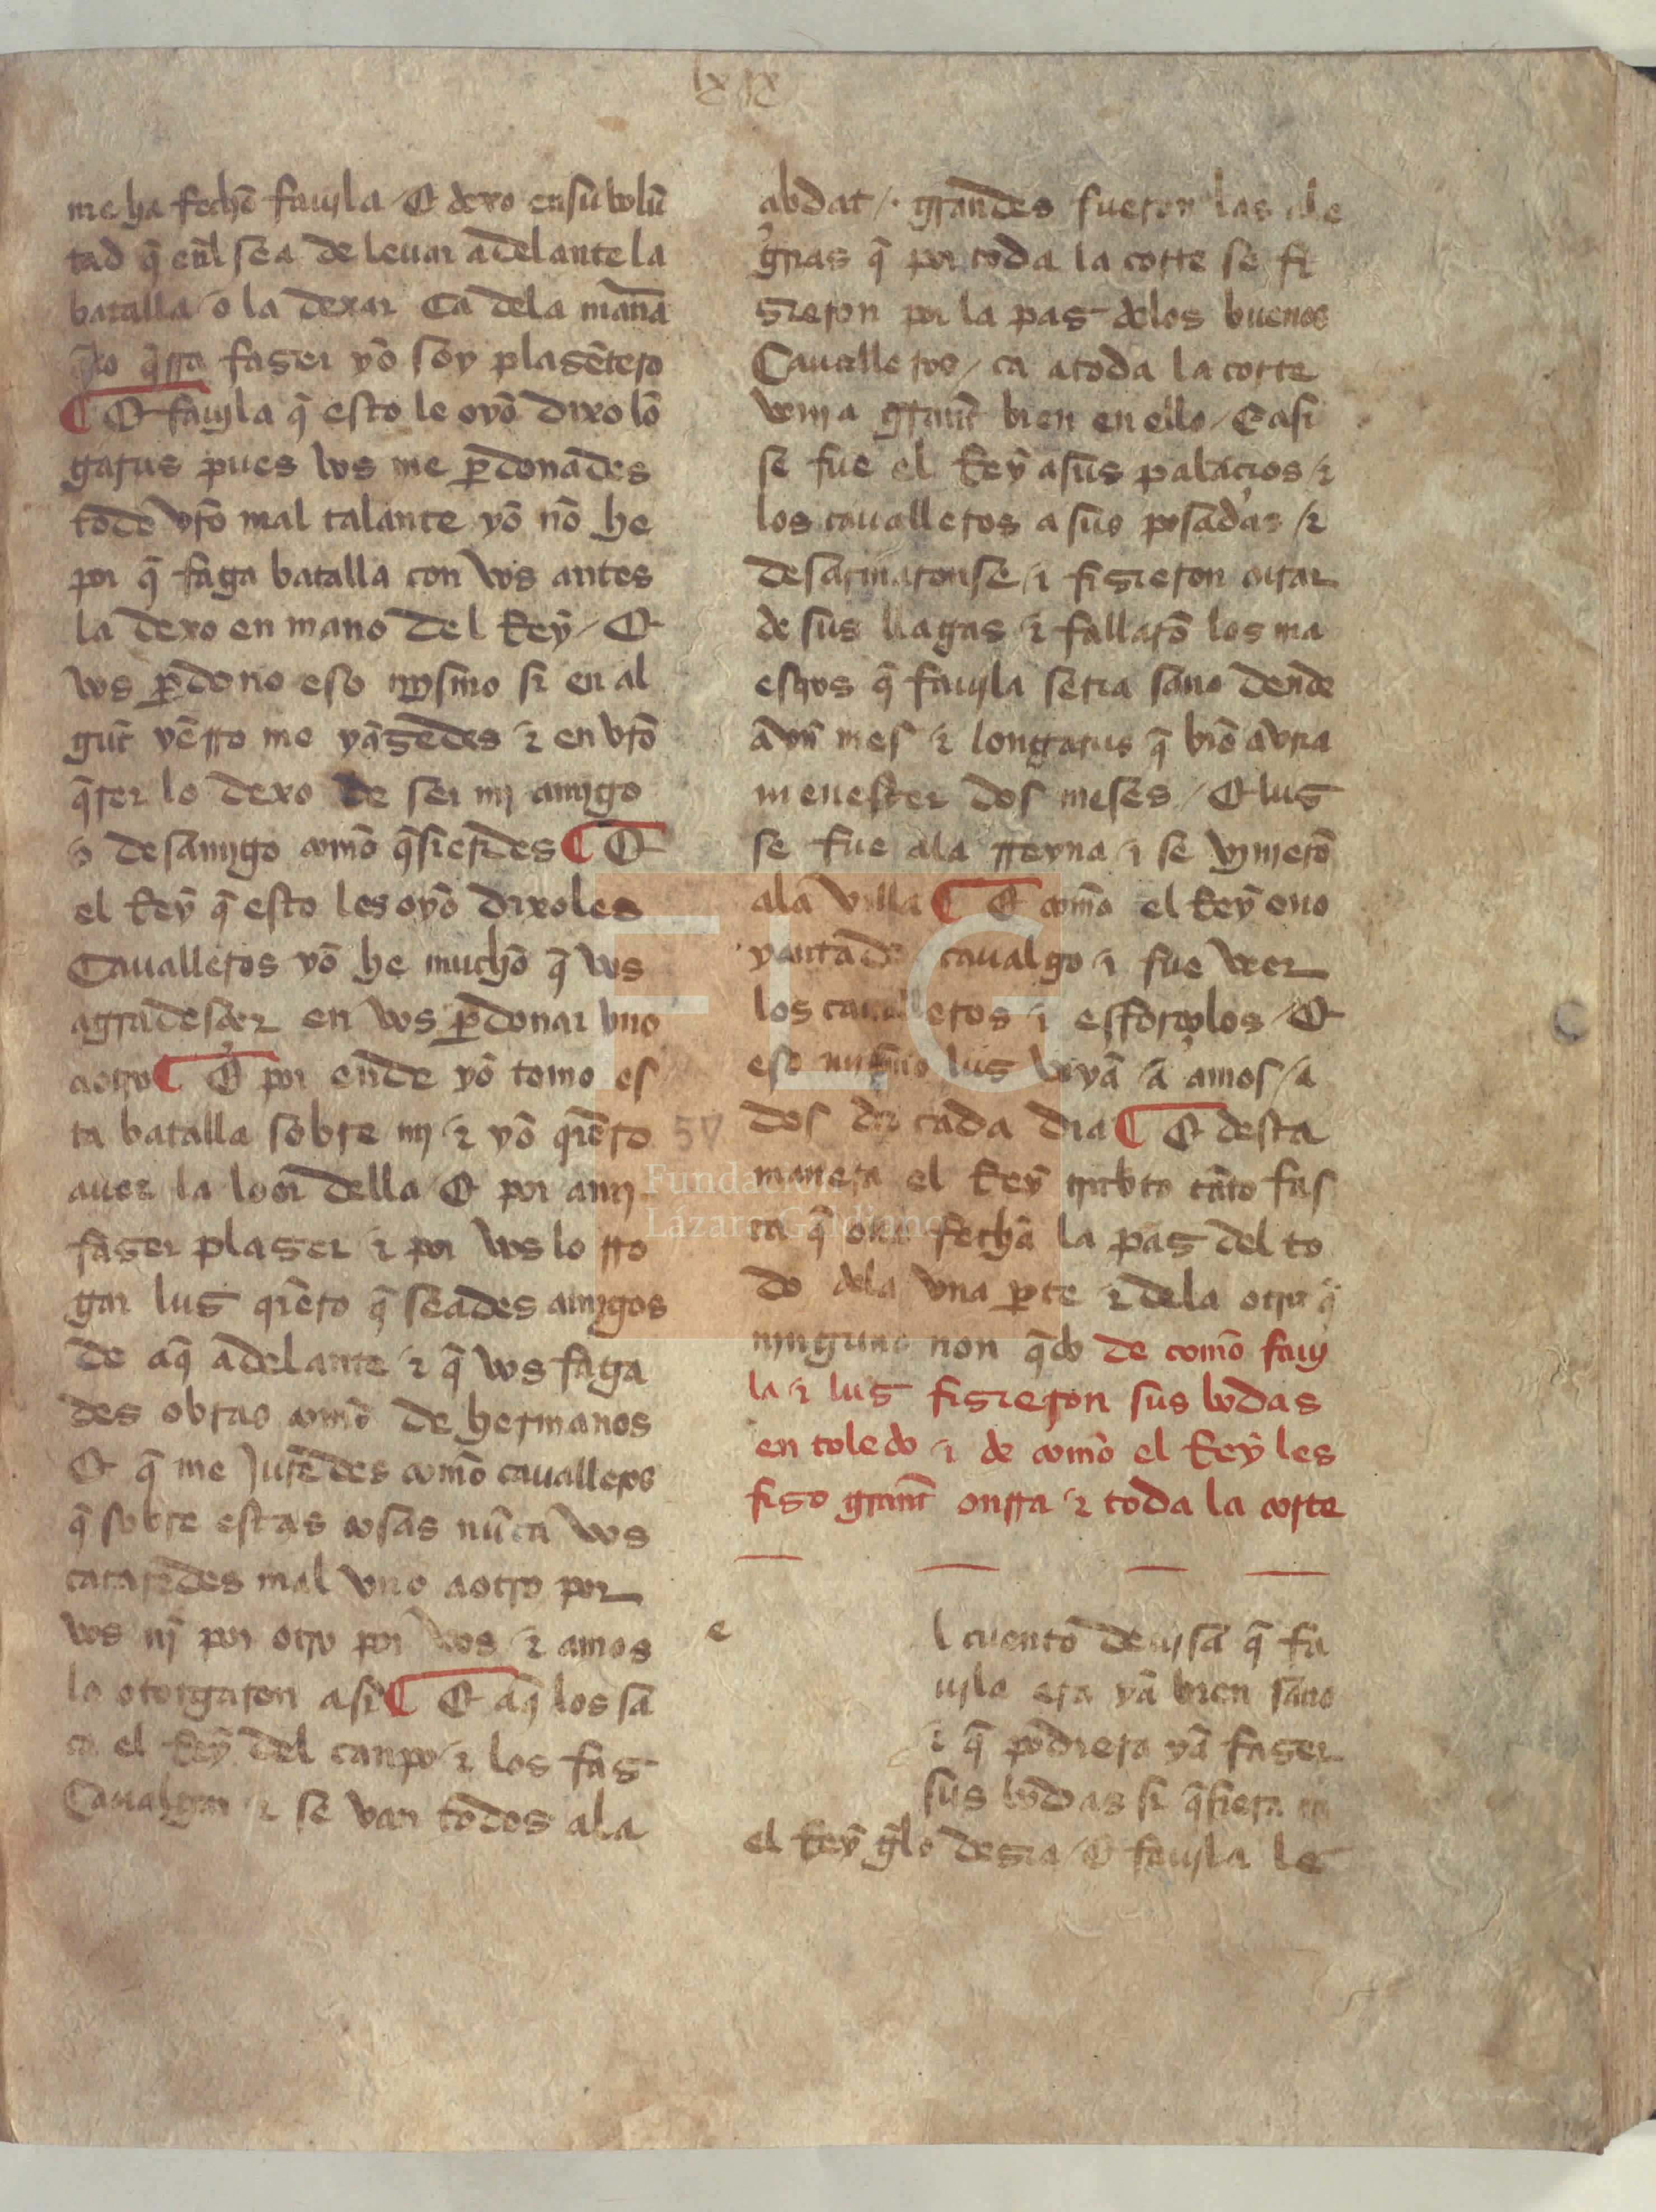 lxix
me ha fecho fauila / E dexo en su volũ
tad q̃ en̄l sea de leuar adelante la
batalla / o la dexar Ca dela maña
q̃ lo q̃rra faser yo soy plasẽtero
¶ E fauila q̃ esto le oyo dixo lõ
garus pues vos me ꝑdonades
todo vr̃o mal talante yo nõ he
por q̃ faga batalla con vos antes
la dexo en mano del Rey / E
vos ꝑdono eso mysmo si en al
gũt yẽrro me yasedes ⁊ en vr̃o
q̃rer lo dexo de ser mj amigo
o desamigo com̃o q̃sierdes ¶ E
el Rey q̃ esto les oyo dixoles
Caualleros yo he mucho q̃ vos
agradescer en vos ꝑdonar vno
a otro ¶ E por ende yo tomo es
ta batalla sobre mj ⁊ yo qͥero
auer la loor della E por amj
faser plaser ⁊ por vos lo rro
gar lus qͥero q̃ seades amjgos
de aq̃ adelante ⁊ q̃ vos faga
des obras com̃o de hermanos
E q̃ me Juredes com̃o caualleros
q̃ sobre estas cosas nũca vos
cataredes mal vno a otro por
vos nj̃ por otro por vos ⁊ amos
lo otorgaron asi ¶ E aq̃ los sa
ca el Rey del canpo ⁊ los fas
Caualgar ⁊ se van todos ala
abdat / grandes fueron las ale
grias q̃ por toda la corte se fi
sieron por la pas delos buenos
Caualleros / ca atoda la corte
venja grant bien en ello / E asi
se fue el Rey asus palacios ⁊
los caualleros a sus posadas / ⁊
desarmaronse / ⁊ fisieron curar
de sus llagas ⁊ fallarõ los ma
estros q̃ fauila seria sano dende
a vn mes ⁊ longarus q̃ biẽ avria
menester dos meses / E lus
se fue ala rreyna ⁊ se vjnierõ
ala villa ¶ E com̃o el Rey ouo
yantado caualgo ⁊ fue veer
los caualleros ⁊ esforçolos / E
eso mismo lus veya a amos / a
dos de cada dia ¶ E desta
manera el Rey trabto tãto fas
ta q̃ ouo fecha la pas del to
do dela vna ꝑte ⁊ dela otra q̃
njnguno non q̃do de com̃o fauj
la ⁊ lus fisieron sus bodas
en toledo ⁊ de com̃o el Rey les
fiso grant onrra ⁊ toda la corte
e
l cuento deuisa q̃ fa
uila era ya bien sano
⁊ q̃ podiera ya faser
sus bodas si q̃siera ca
el Rey gͤlo desia / E fauila le
57
FLG
Fundación
Lázaro Galdiano